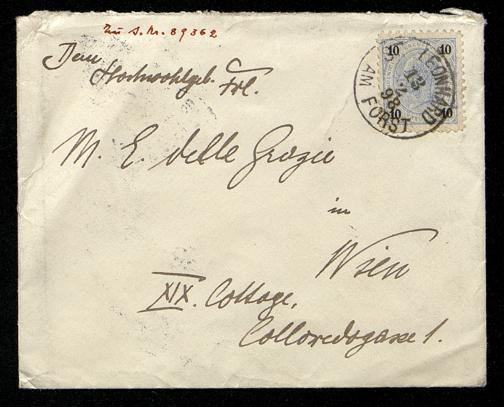 Zu I. Nr. 89362
Hochwohlgeb.
Frl.
M. E. delle Grazie
in
Wien
XIX. Cottage,
Colloredogasse 1.
10 10
10 10
LEONHARD
13
98
AM FORST